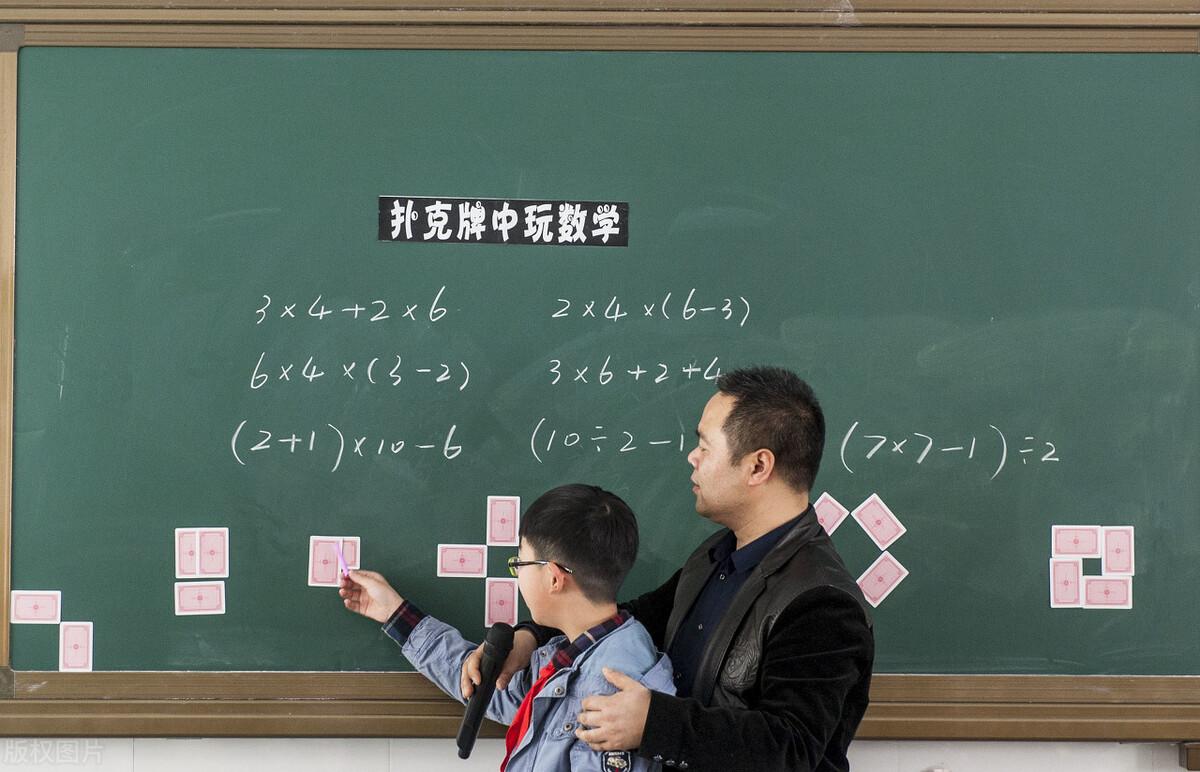 扑克牌中玩数学
3×4+2×6 2×4×(6-3)
6×4×(3-2) 3×6+2+4
(2+1)×10-6 (10÷2-1 (7×7-1)÷2
版权图片